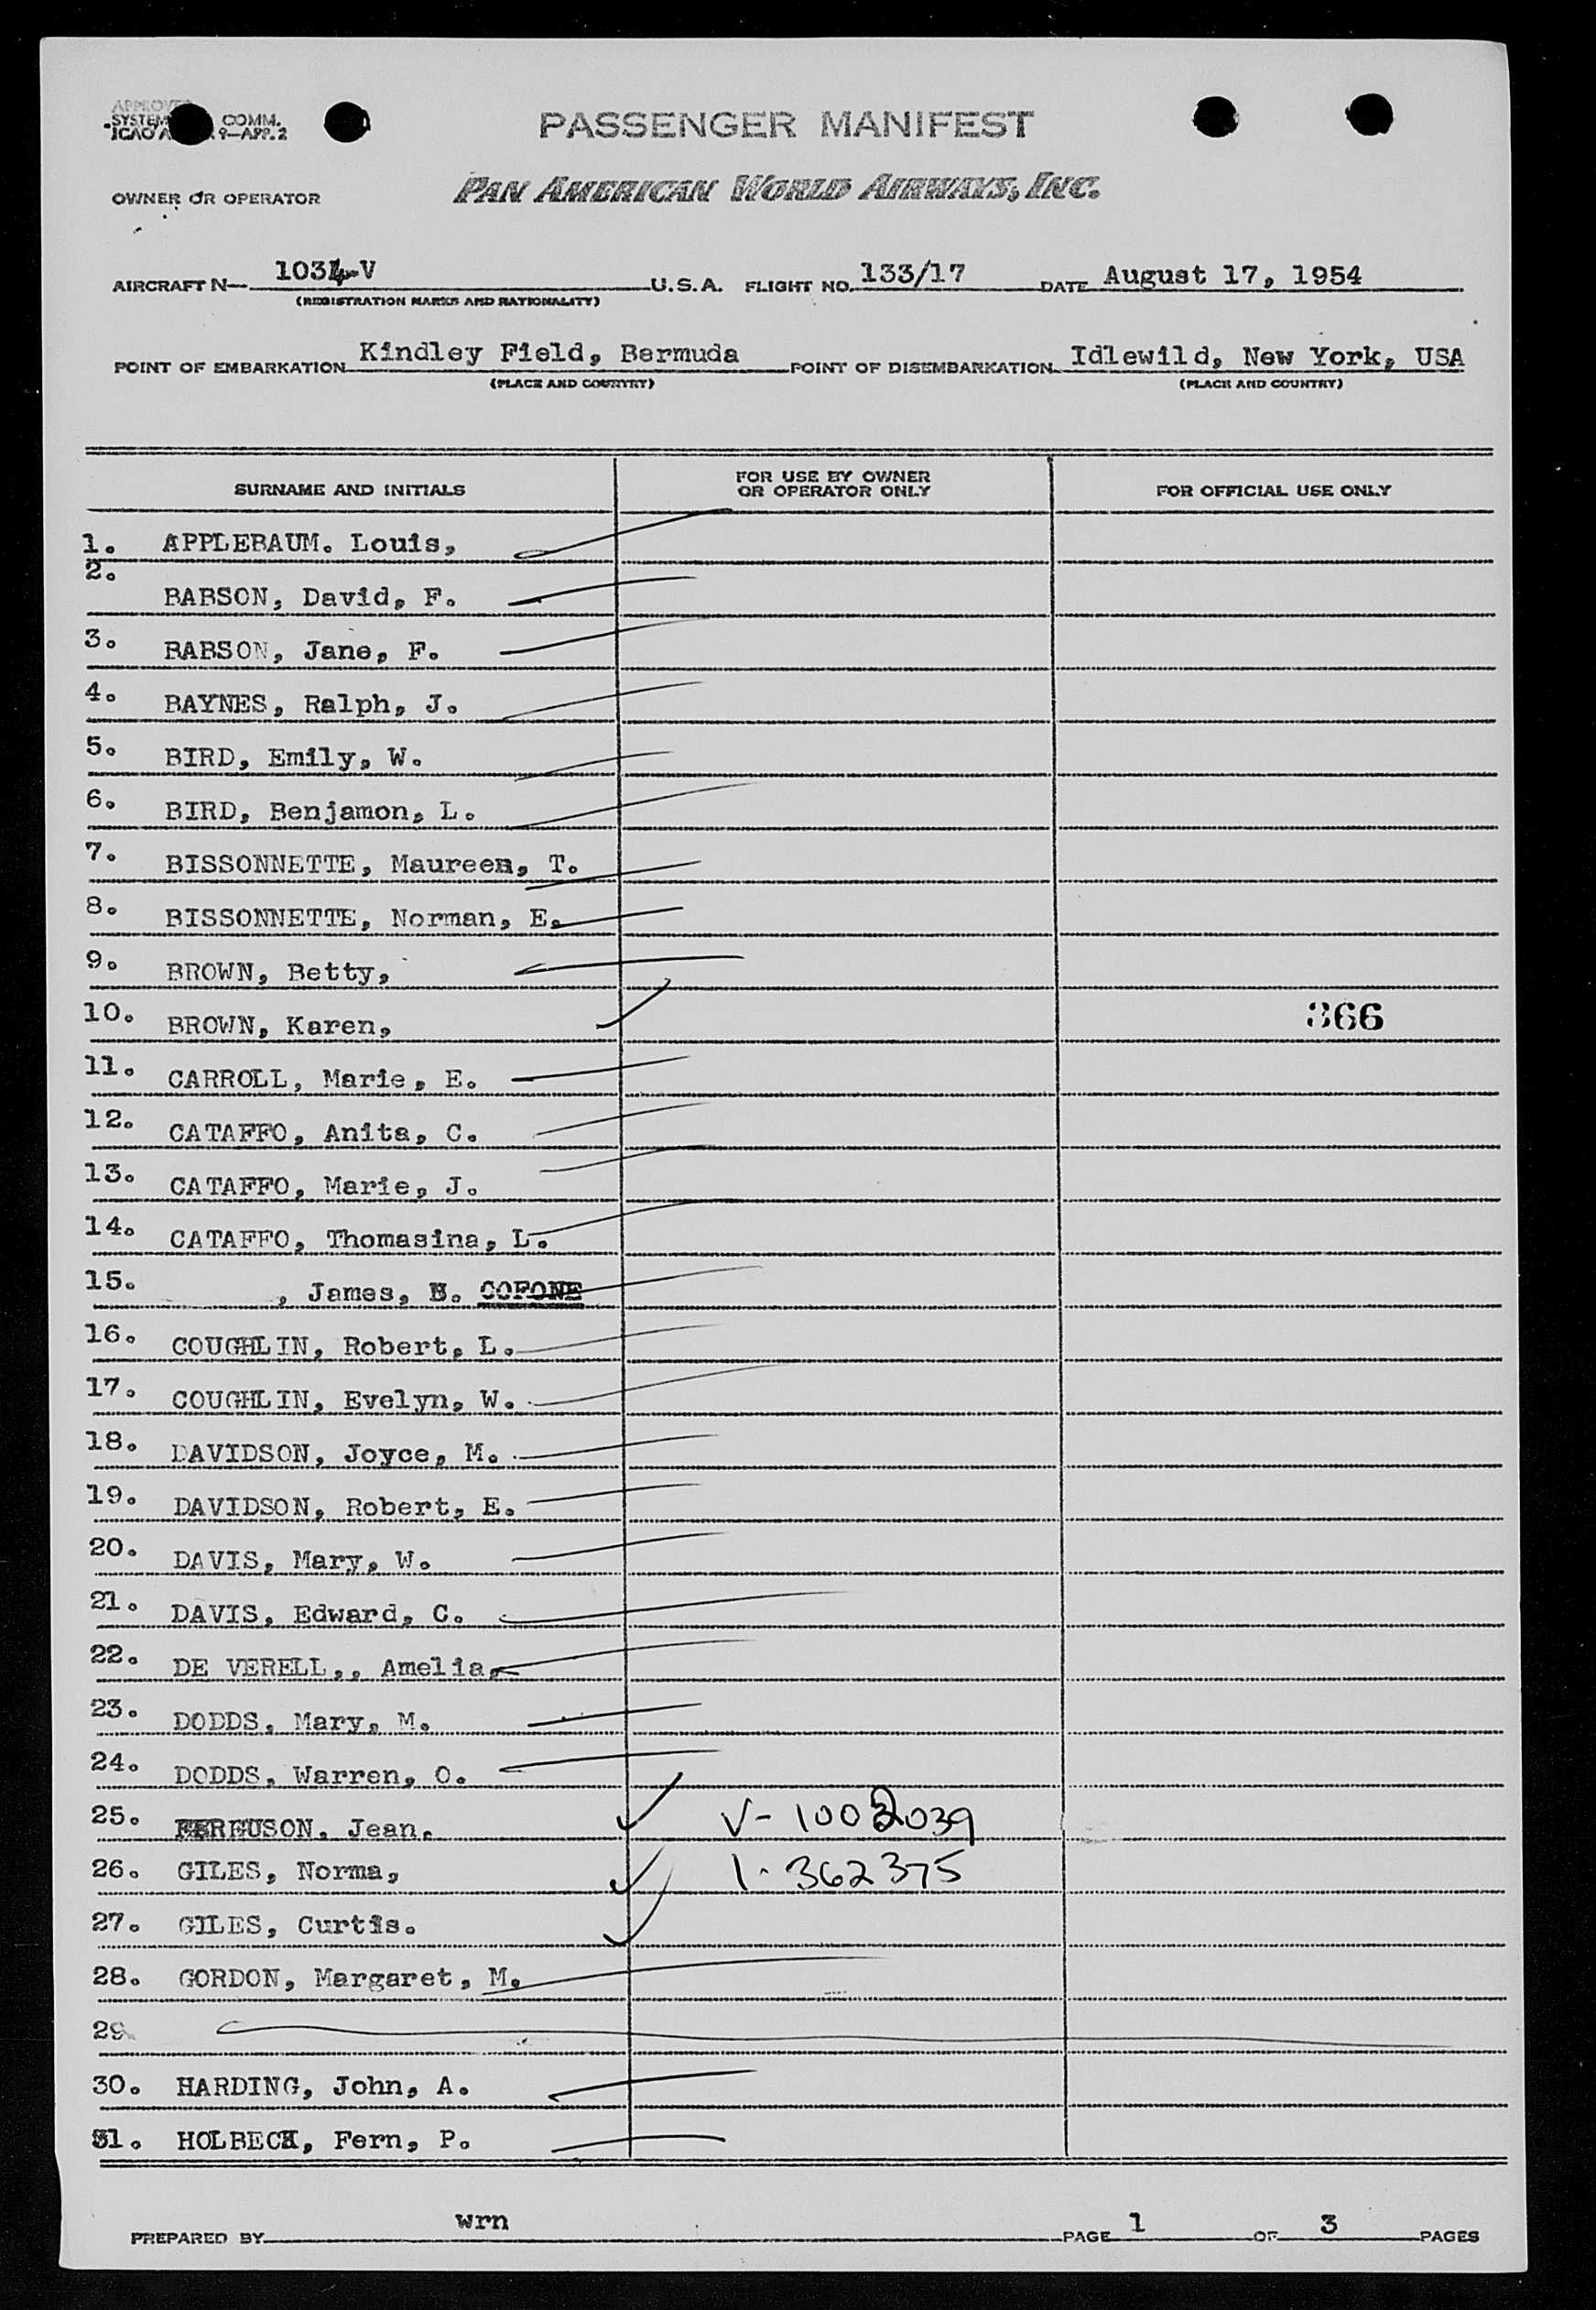 APPROVED
SYSTEM COMM.
ICAO A 9—APP. 2
PASSENGER MANIFEST
OWNER OR OPERATOR PAN AMERICAN WORLD AIRWAYS, INC.
AIRCRAFT N— 1034-V U.S.A. FLIGHT NO. 133/17 DATE August 17, 1954
(REGISTRATION MARKS AND NATIONALITY)
POINT OF EMBARKATION Kindley Field, Bermuda POINT OF DISEMBARKATION Idlewild, New York, USA
(PLACE AND COUNTRY) (PLACE AND COUNTRY)
SURNAME AND INITIALS FOR USE BY OWNER OR OPERATOR ONLY FOR OFFICIAL USE ONLY
1. APPLEBAUM. Louis,
2. BABSON, David, F.
3. BABSON, Jane, F.
4. BAYNES, Ralph, J.
5. BIRD, Emily, W.
6. BIRD, Benjamon, L.
7. BISSONNETTE, Maureen, T.
8. BISSONNETTE, Norman, E.
9. BROWN, Betty,
10. BROWN, Karen, 366
11. CARROLL, Marie, E.
12. CATAFFO, Anita, C.
13. CATAFFO, Marie, J.
14. CATAFFO, Thomasina, L.
15. , James, COFONE
16. COUGHLIN, Robert, L.
17. COUGHLIN, Evelyn, W.
18. DAVIDSON, Joyce, M.
19. DAVIDSON, Robert, E.
20. DAVIS, Mary, W.
21. DAVIS, Edward, C.
22. DE VERELL,, Amelia,
23. DODDS, Mary, M.
24. DODDS, Warren, O.
25. FERGUSON, Jean, V-1002039
26. GILES, Norma, 1-362375
27. GILES, Curtis.
28. GORDON, Margaret, M.
29
30. HARDING, John, A.
31. HOLBECK, Fern, P.
PREPARED BY wrn PAGE 1 OF 3 PAGES